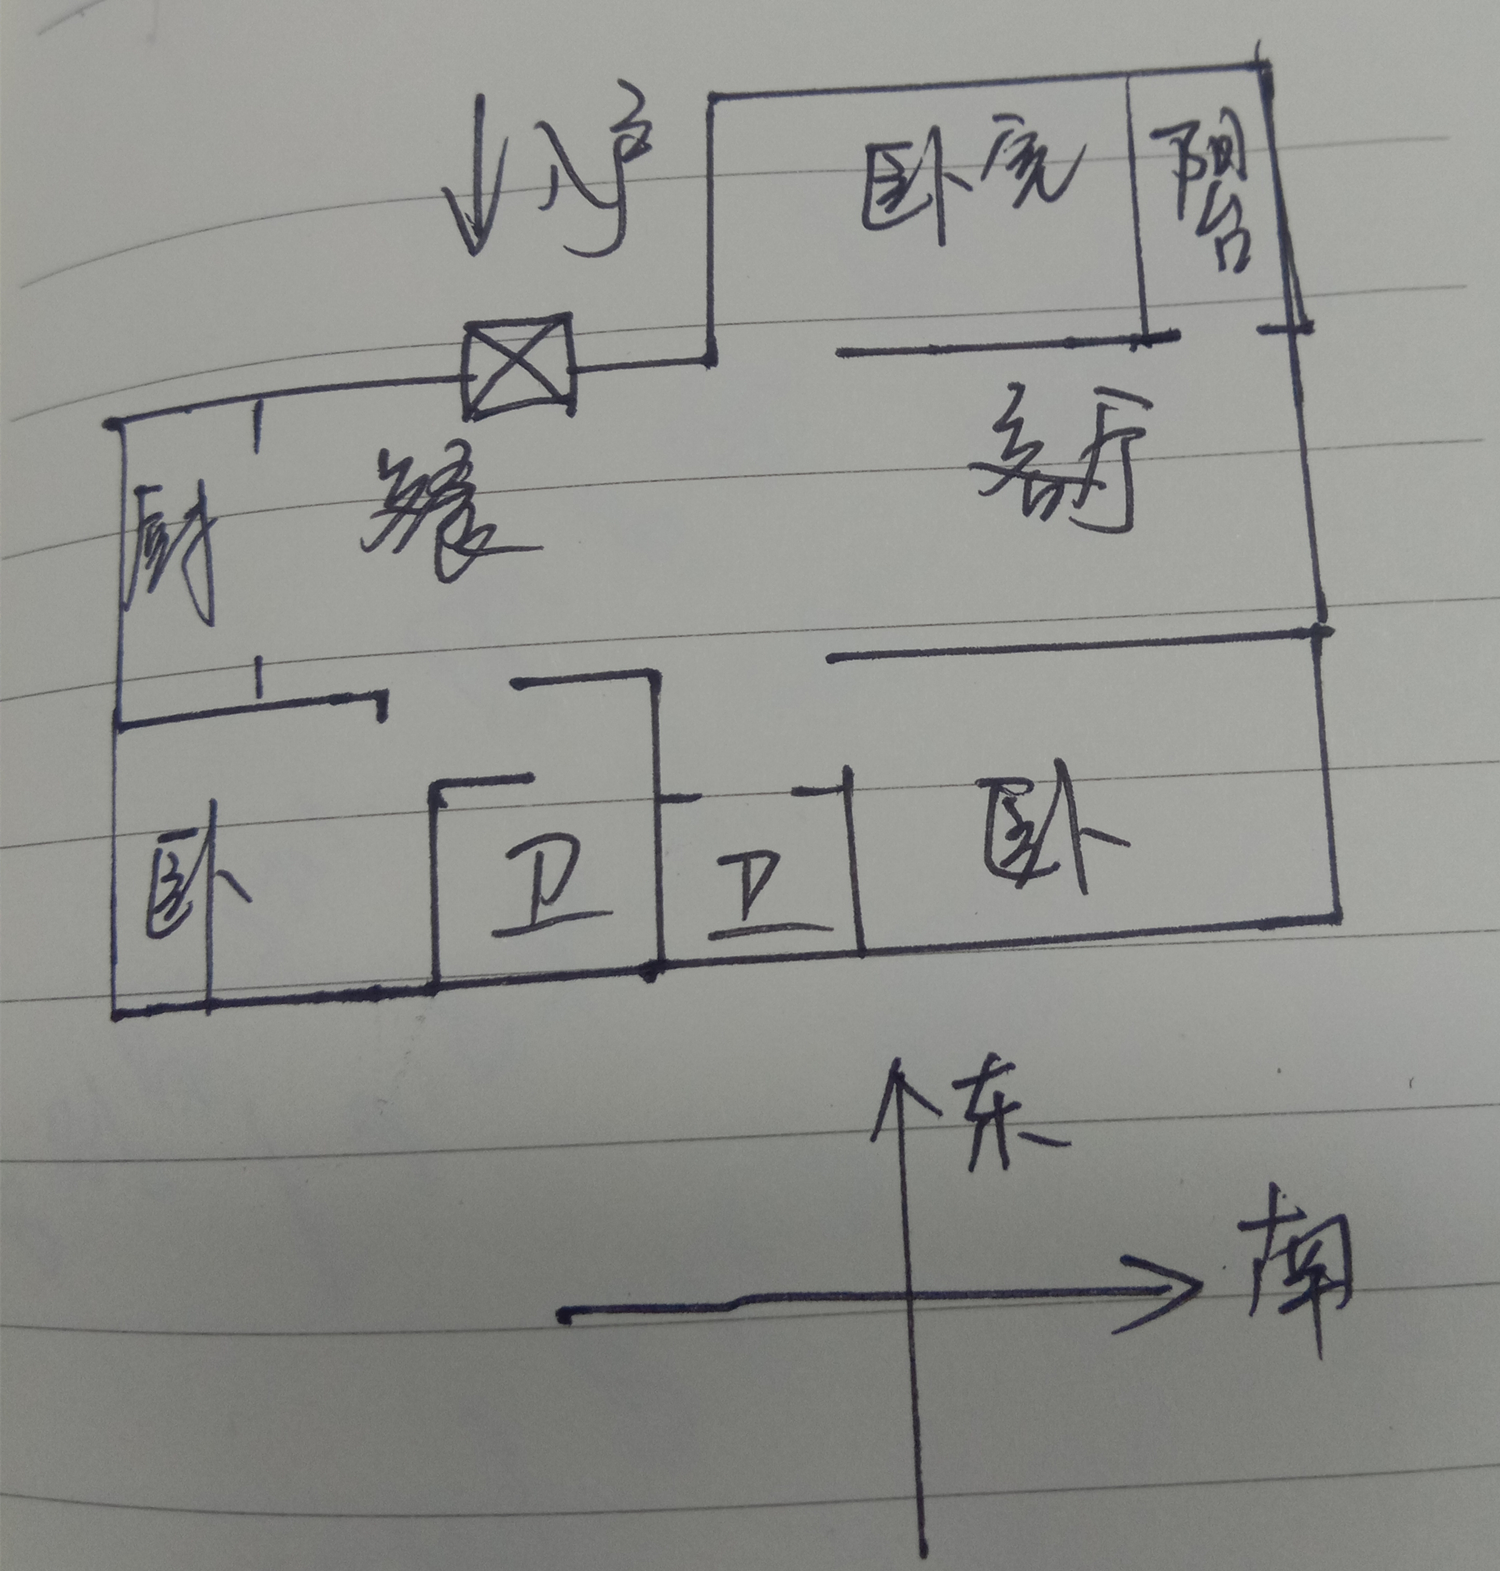 入户
卧室
阳台
厨
餐
客厅
卧
卫
卫
卧
东
南